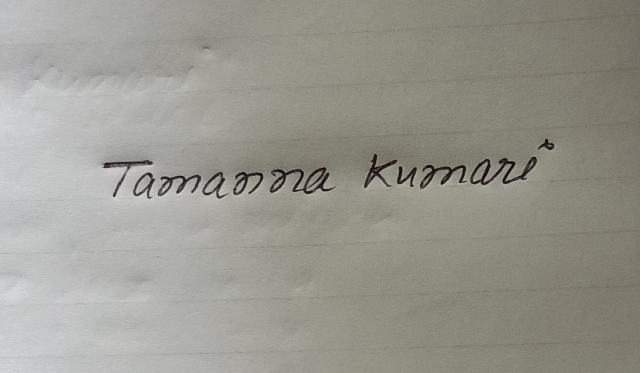 Tamanna Kumari